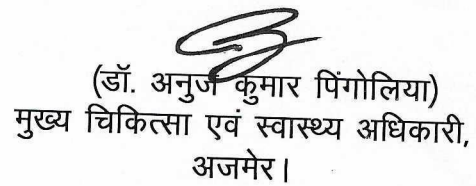 (डॉ. अनुज कुमार पिंगोलिया)
मुख्य चिकित्सा एवं स्वास्थ्य अधिकारी,
अजमेर।